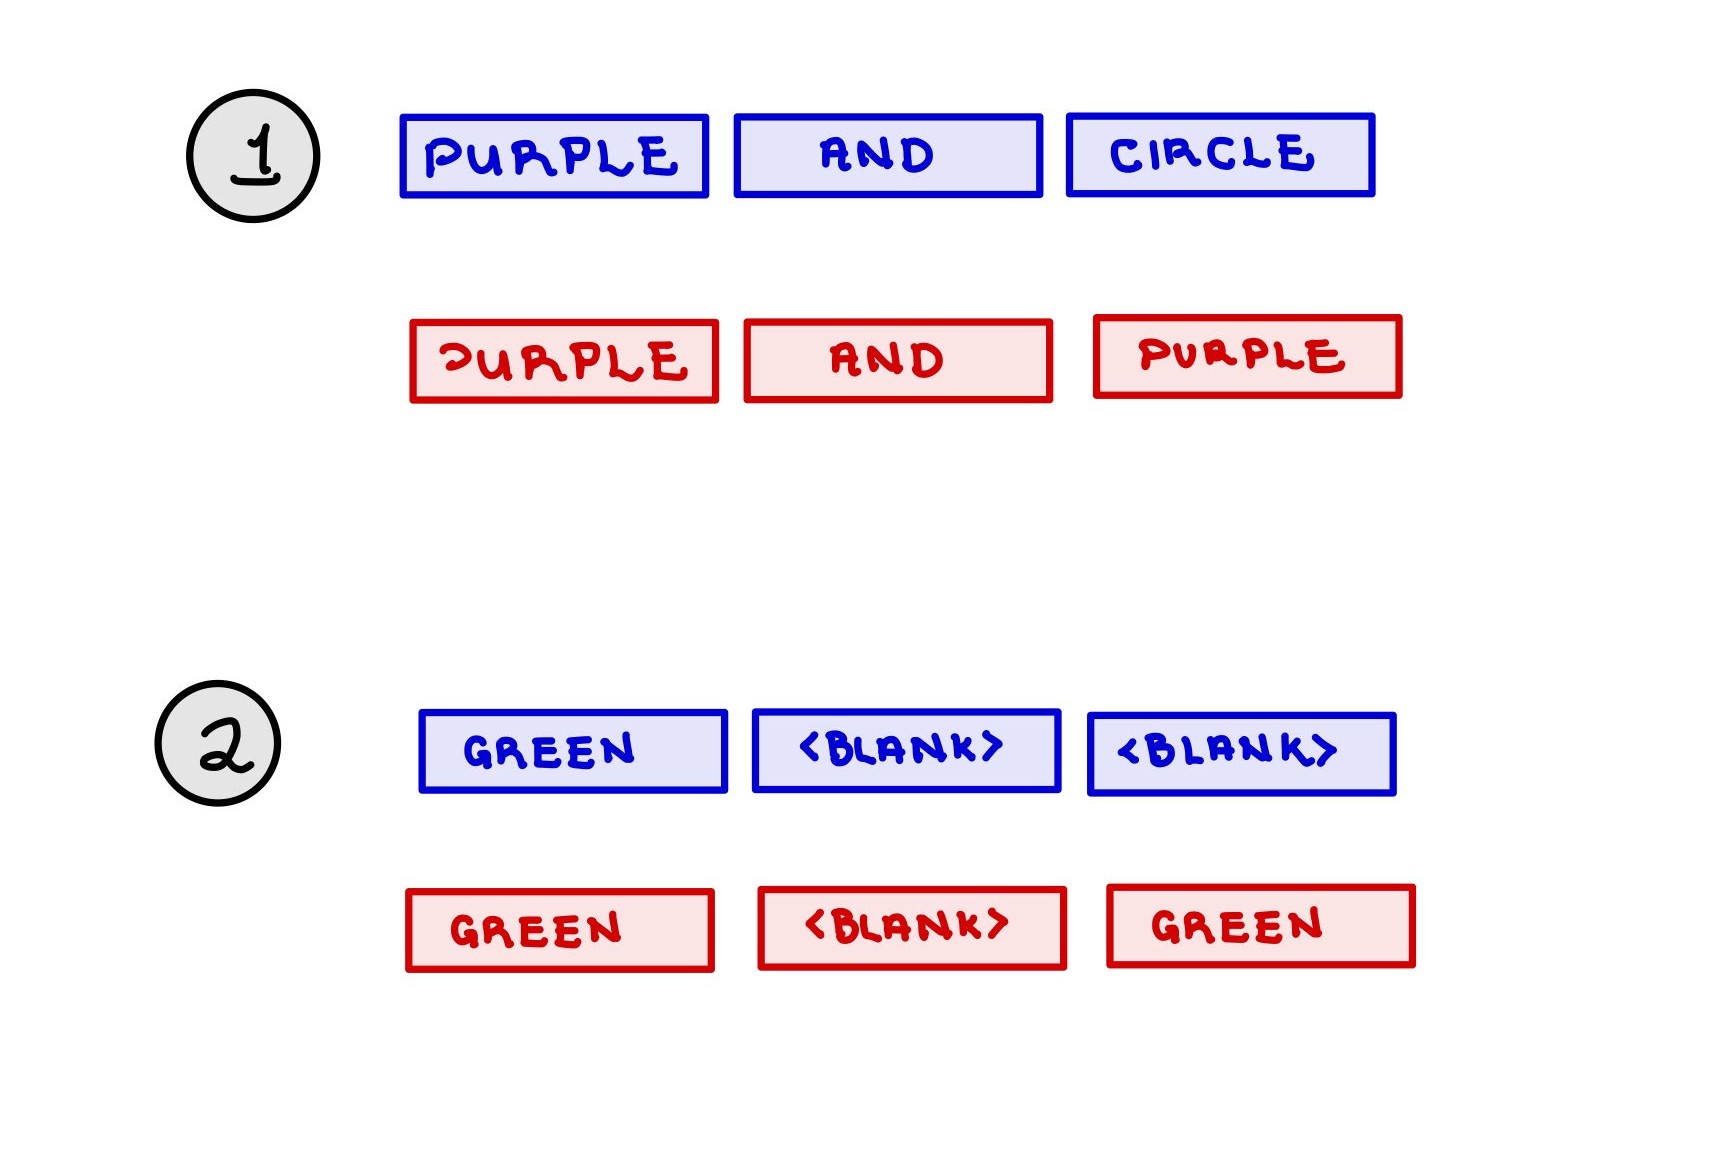 1
PURPLE AND CIRCLE
PURPLE AND PURPLE
2
GREEN <BLANK> <BLANK>
GREEN <BLANK> GREEN